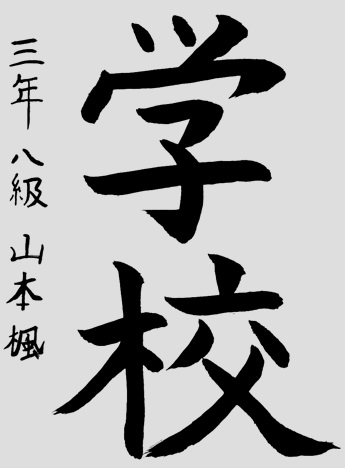 学校
三年 八級 山本楓